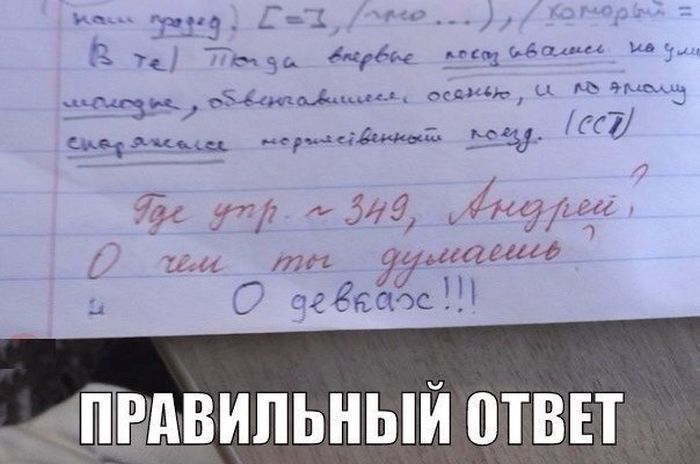 наш прадед. [=], (что...), (который =
(В те) Тогда впервые показывались на ули
молодые, обвенчавшиеся осенью, и поэтому
снаряжался торжественный поезд. (ССП)
Где упр. ~ 349, Андрей?
О чем ты думаешь?
О девках!!!
ПРАВИЛЬНЫЙ ОТВЕТ